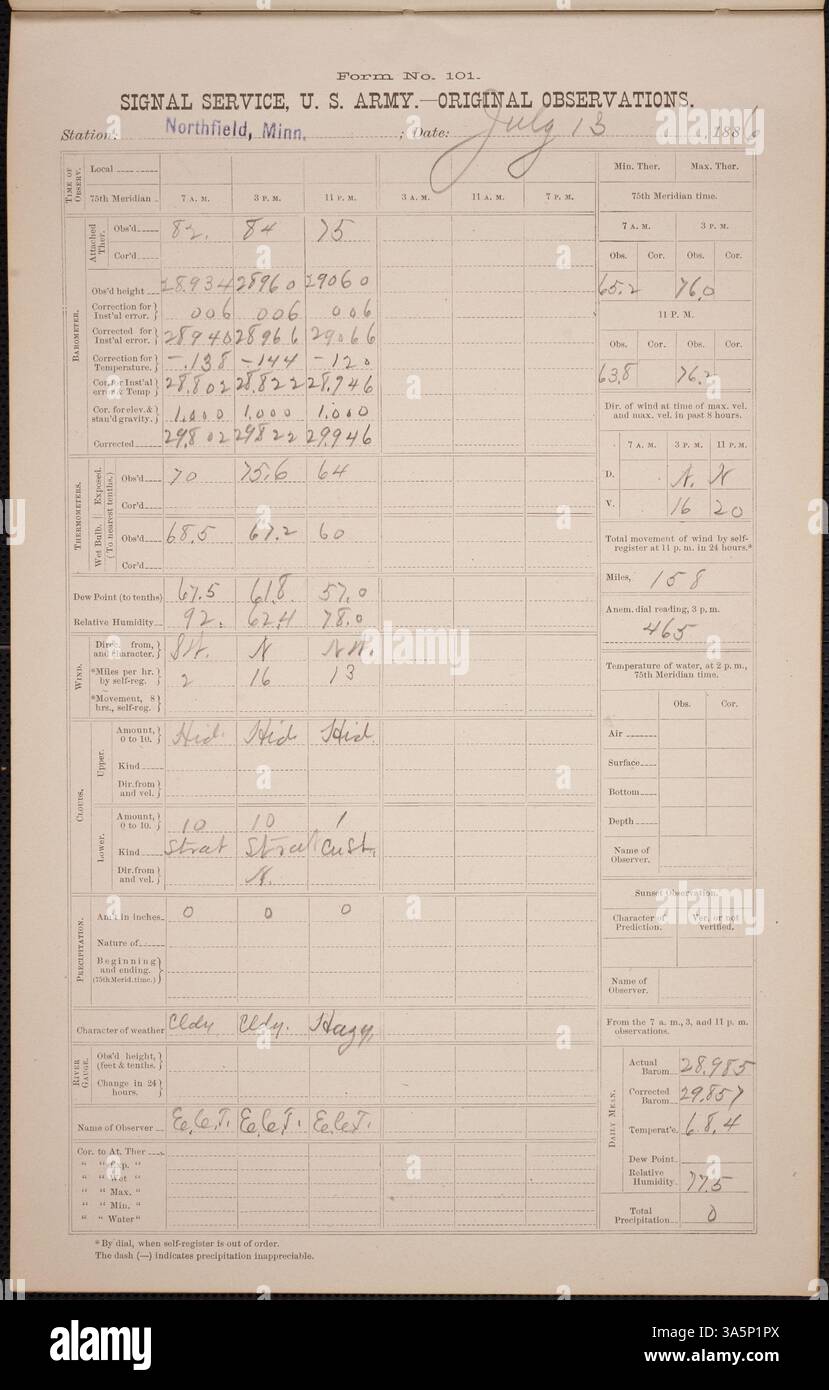 Form No. 101.
SIGNAL SERVICE, U. S. ARMY.—ORIGINAL OBSERVATIONS.
Station: Northfield, Minn. ; Date: July 13, 188
TIME OF OBSERV.
Local
75th Meridian 7 A. M. 3 P. M. 11 P. M. 3 A. M. 11 A. M. 7 P. M.
BAROMETER.
Attached Ther.
Obs'd 82. 84 75
Cor'd
Obs'd height 28.934 28960 29060
Correction for Inst'al error. 006 006 006
Corrected for Inst'al error. 28940 28966 29066
Correction for Temperature. -.138 -144 -120
Cor. for Inst'al error & Temp 28.802 28.822 28.946
Cor. for elev. & stan'd gravity. 1.000 1.000 1.000
Corrected 29802 29822 29.946
THERMOMETERS.
Exposed.
Wet Bulb.
(To nearest tenths.)
Obs'd 70 75.6 64
Cor'd
Obs'd 68.5 67.2 60
Cor'd
Dew Point (to tenths) 67.5 61.8 57.0
Relative Humidity 92. 62.4 78.0
WIND.
Direc. from, and character. SW. N NW.
*Miles per hr. by self-reg. 2 16 13
*Movement, 8 hrs., self-reg.
CLOUDS.
Upper.
Amount, 0 to 10. Hid. Hid Hid.
Kind
Dir. from and vel.
Lower.
Amount, 0 to 10. 10 10 1
Kind Strat Strat CuSt.
Dir. from and vel. N.
PRECIPITATION.
Am't in inches 0 0 0
Nature of
Beginning and ending. (75th Merid. time.)
Character of weather Cldy Cldy. Hazy,
RIVER GAUGE.
Obs'd height, (feet & tenths.)
Change in 24 hours.
Name of Observer E.C.T. E.C.T. E.C.T.
Cor. to At. Ther
" " Exp. "
" " Wet "
" " Max. "
" " Min. "
" " Water "
*By dial, when self-register is out of order.
The dash (—) indicates precipitation inappreciable.
Min. Ther. Max. Ther.
75th Meridian time.
7 A. M. 3 P. M.
Obs. Cor. Obs. Cor.
65.2 76.0
11 P. M.
Obs. Cor. Obs. Cor.
63.8 76.2
Dir. of wind at time of max. vel. and max. vel. in past 8 hours.
7 A. M. 3 P. M. 11 P. M.
D. N. N
V. 16 20
Total movement of wind by self-register at 11 p. m. in 24 hours.*
Miles, 158
Anem. dial reading, 3 p.m.
465
Temperature of water, at 2 p. m., 75th Meridian time.
Obs. Cor.
Air
Surface
Bottom
Depth
Name of Observer.
Sunset Observation.
Character of Prediction. Ver. or not verified.
Name of Observer.
From the 7 a. m., 3, and 11 p. m. observations.
DAILY MEAN.
Actual Barom. 28.985
Corrected Barom. 29.857
Temperat'e. 68.4
Dew Point
Relative Humidity 77.5
Total Precipitation 0
alamy
Image ID: 3A5P1PX
www.alamy.com